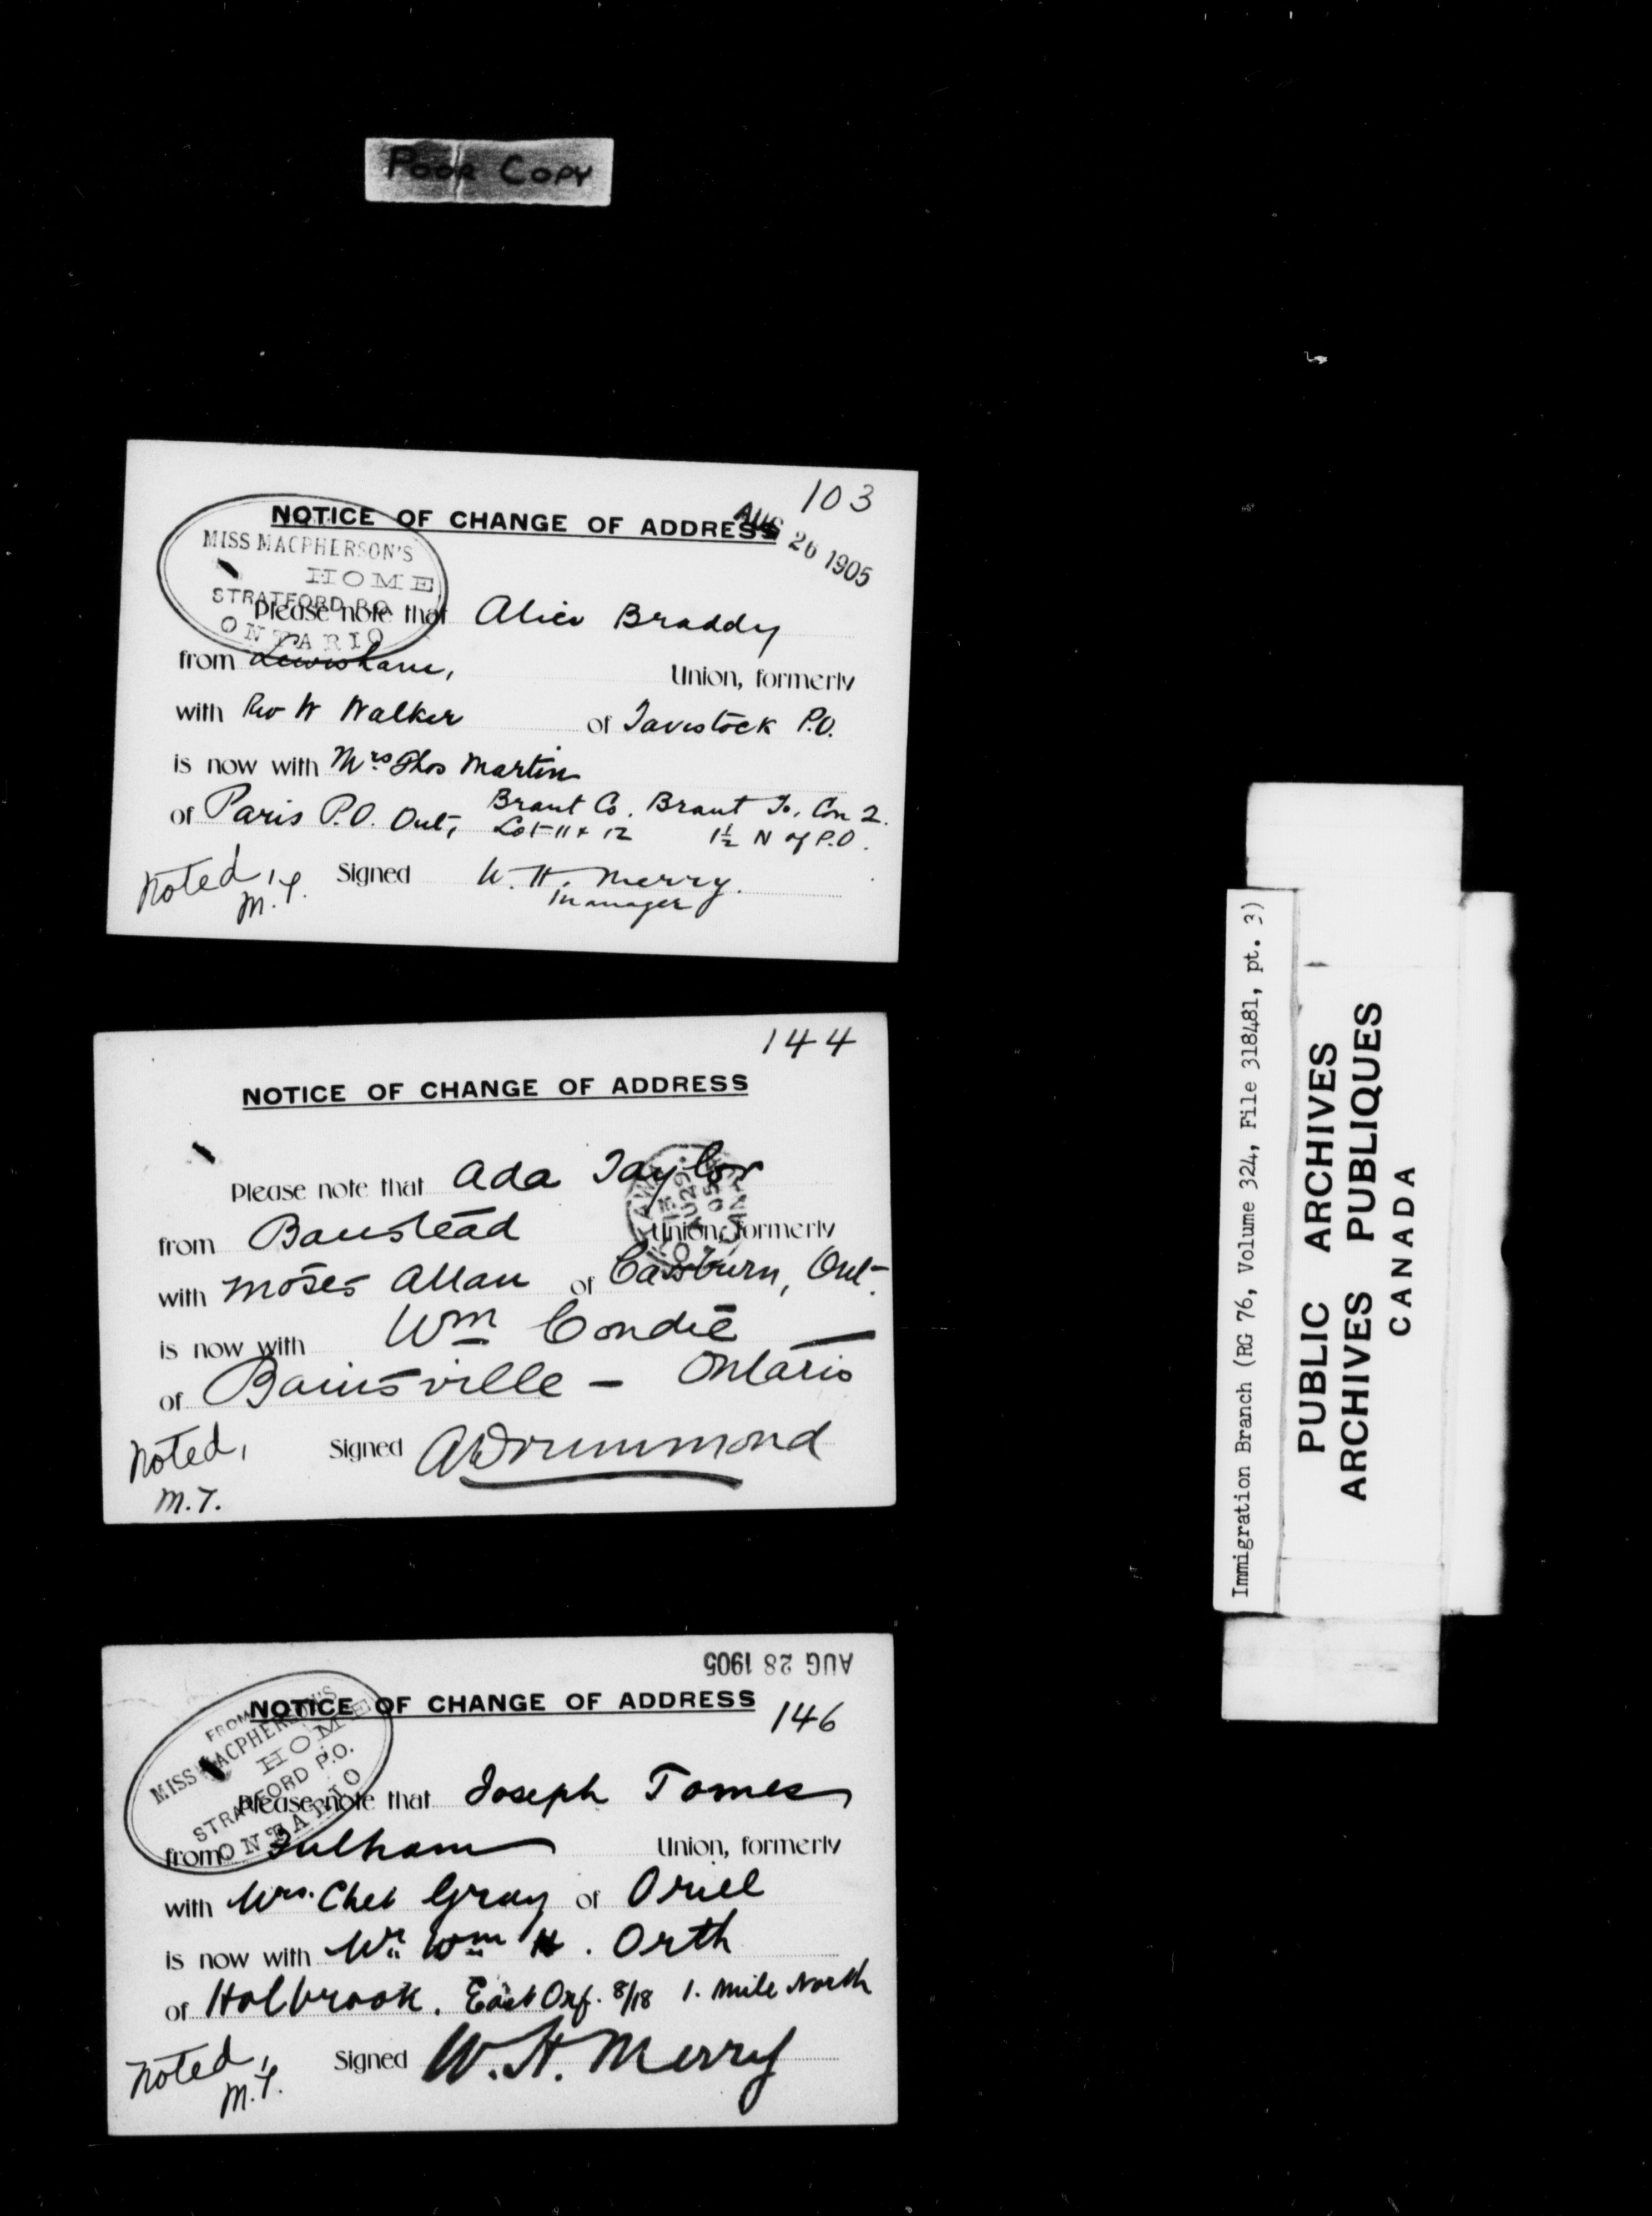 POOR COPY
103
NOTICE OF CHANGE OF ADDRESS
AUG 26 1905
MISS MACPHERSON'S
HOME
STRATFORD P.O.
ONTARIO
Please note that Alice Braddy
from Lewisham, Union, formerly
with Rev W Walker of Tavistock P.O.
is now with Mrs Thos Martin
of Paris P.O. Ont, Brant Co. Brant To. Con 2.
Lot 11 & 12 1½ N of P.O.
Noted, Signed W. H. Merry.
M.T. Manager
144
NOTICE OF CHANGE OF ADDRESS
Please note that Ada Taylor
from Banstead Union, formerly
with Moses Allan of Cassburn, Ont.
is now with Wm Condie
of Bainsville - Ontario
Noted, Signed A Drummond
M.T.
AUG 28 1905
NOTICE OF CHANGE OF ADDRESS
146
FROM
MISS MACPHERSON'S
HOME
STRATFORD P.O.
ONTARIO
Please note that Joseph Tomes
from Fulham Union, formerly
with Mrs. Chet Gray of Oriel
is now with Mr Wm H. Orth
of Holbrook. East Oxf. 8/18 1. Mile North
Noted, Signed W. H. Merry
M.T.
Immigration Branch (RG 76, Volume 324, File 318481, pt. 3)
PUBLIC ARCHIVES
ARCHIVES PUBLIQUES
CANADA